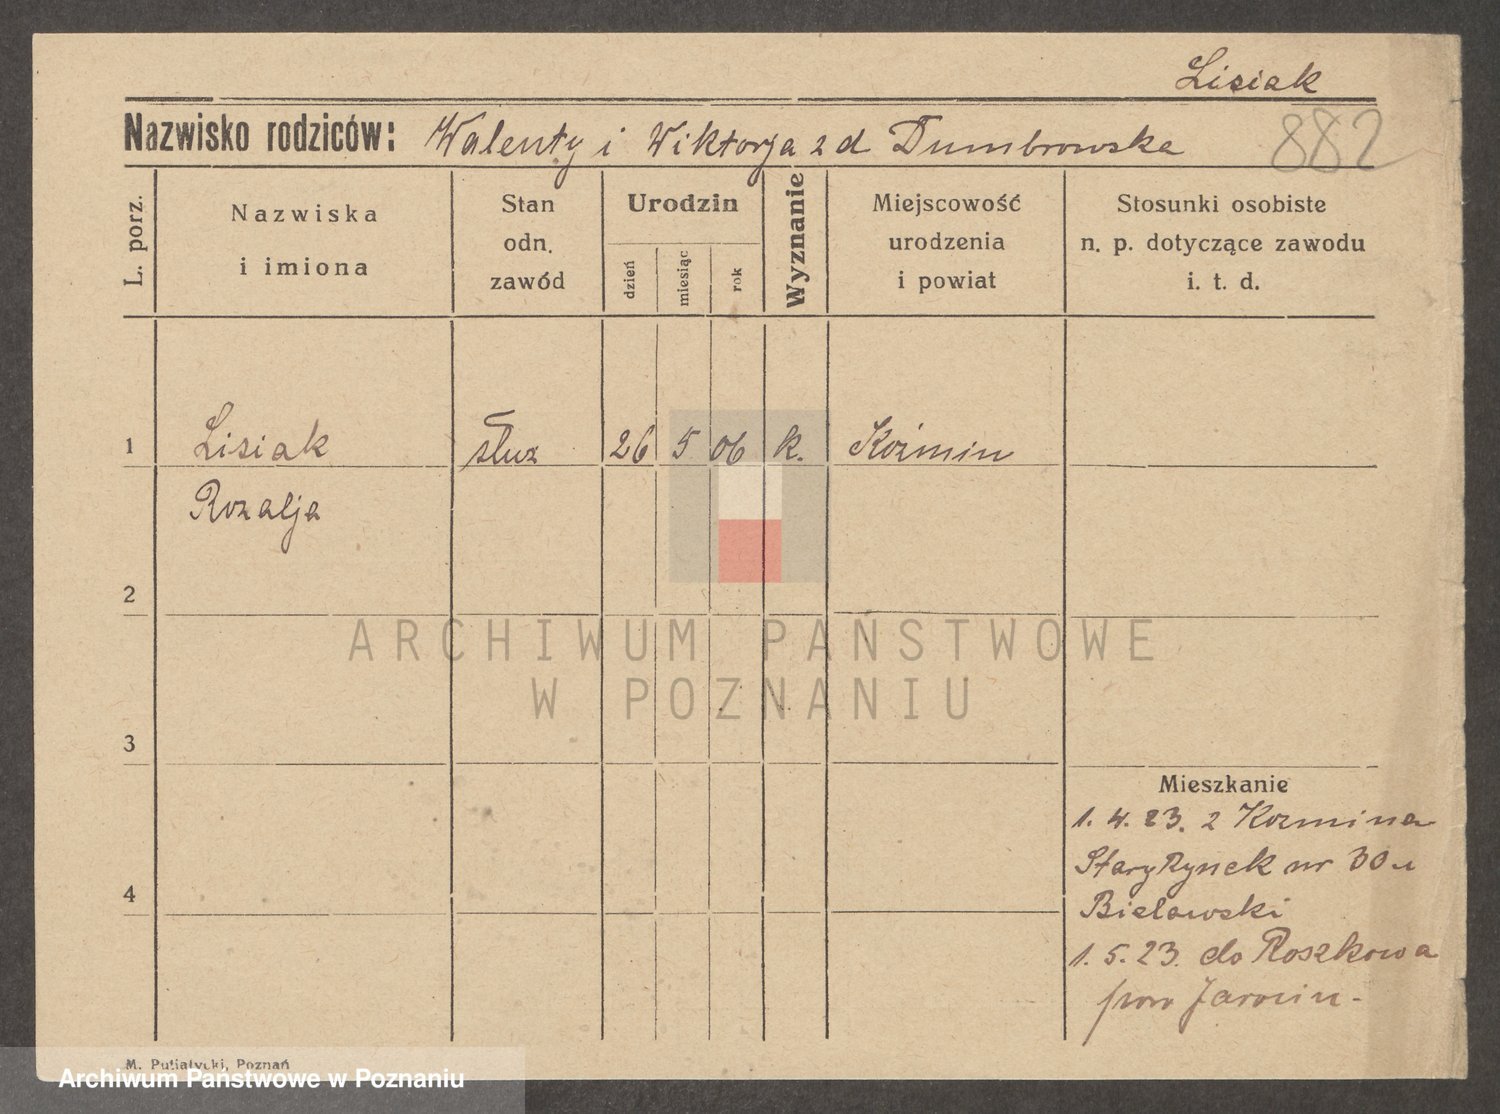 Lisiak
Nazwisko rodziców: Walenty i Wiktorja z d Dumbrowska
882
L. porz.
Nazwiska
i imiona
Stan
odn.
zawód
Urodzin
dzień
miesiąc
rok
Wyznanie
Miejscowość
urodzenia
i powiat
Stosunki osobiste
n. p. dotyczące zawodu
i. t. d.
1 Lisiak służ 26 5 06 k. Koźmin
Rozalja
2
ARCHIWUM PAŃSTWOWE
W POZNANIU
3
Mieszkanie
1. 4. 23. z Kozmina
Stary Rynek nr 30 u
4
Bielawski
1. 5. 23. do Roszkowa
pow Jarocin -
M. Putiatycki, Poznań
Archiwum Państwowe w Poznaniu